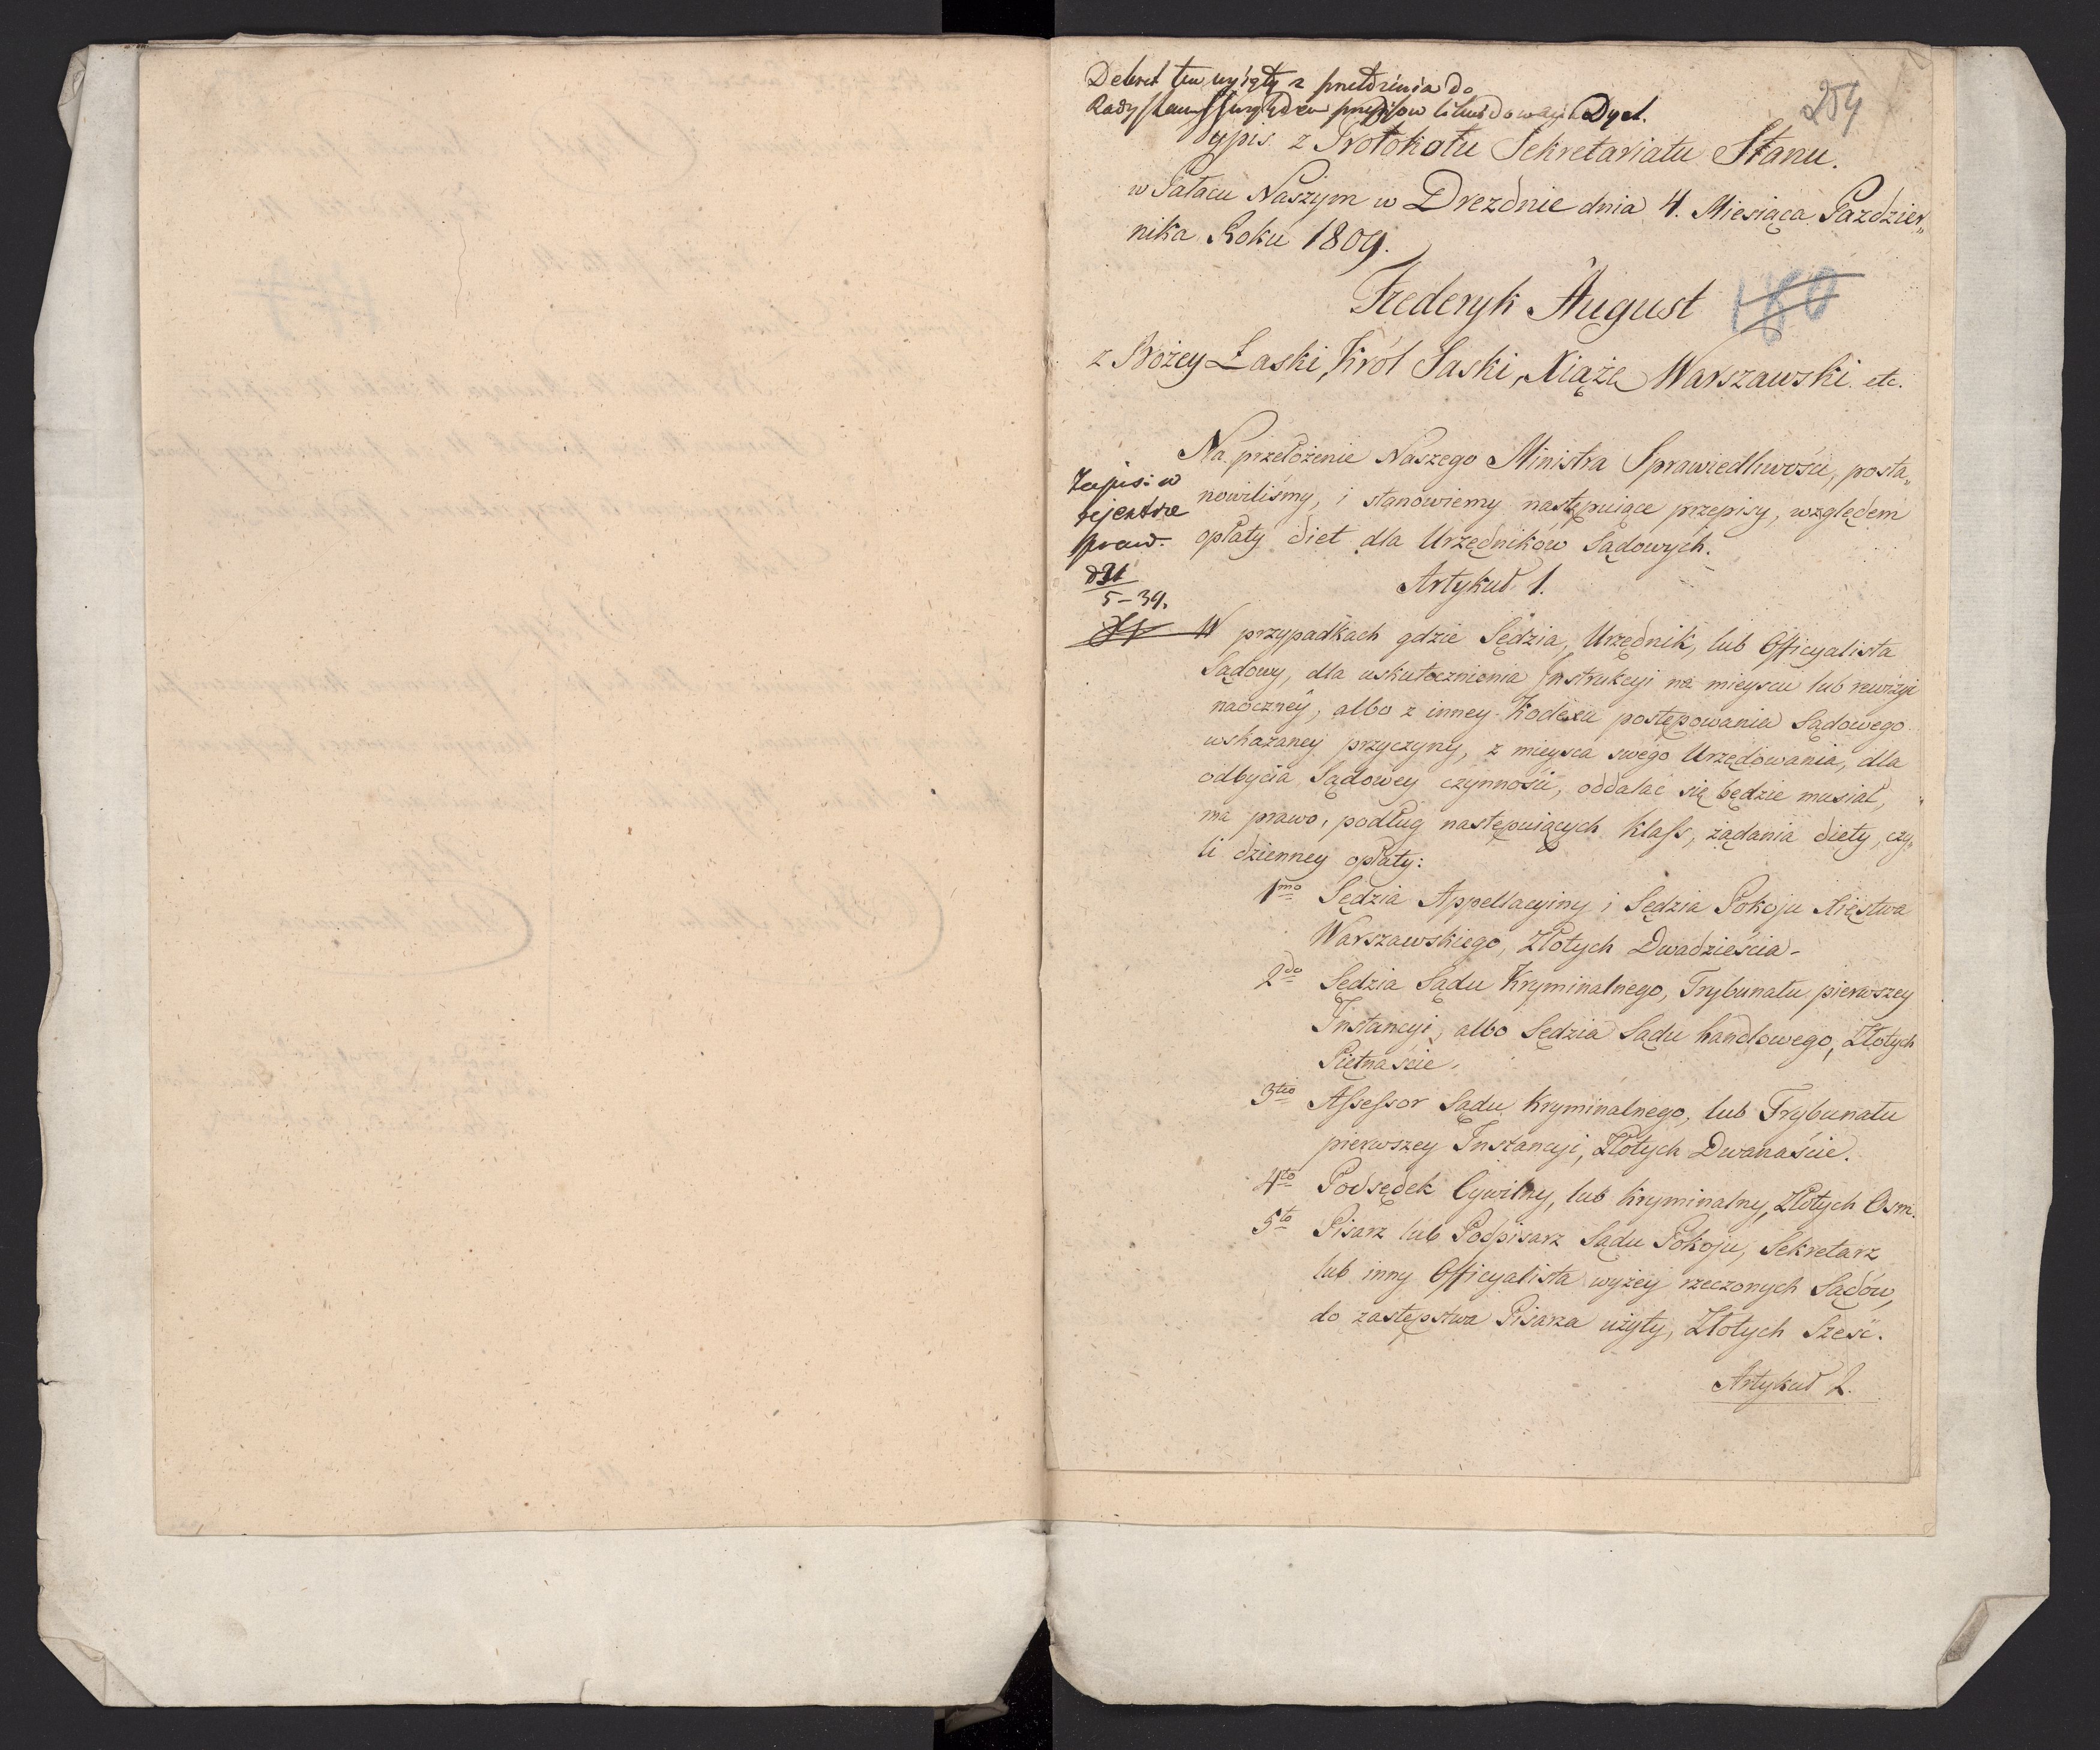 Dekret ten wyięty z przełożenia do
Rady Stanu względem przepisow likwidowania Dyet.
254
Wypis z Protokołu Sekretariatu Stanu.
w Pałacu Naszym w Dreznie dnia 4. Miesiąca Pazdzier„
nika Roku 1809.
Frederyk August
180
z Bożey Łaski, Król Saski, Xiąże Warszawski. etc.
Na przełożenie Naszego Ministra Sprawiedliwości, posta„
nowiliśmy, i stanowiemy następuiące przepisy, względem
opłaty diet dla Urzędników Sądowych.
Zapis: w
rejestrze
spraw.
d 31/5 – 39.
Artykuł 1.
W przypadkach gdzie Sędzia, Urzędnik, lub Officyalista
Sądowy, dla uskutecznienia Instrukcyi na mieyscu lub rewizyi
naoczney, albo z inney Kodexu postępowania Sądowego
wskazaney przyczyny, z mieysca swego Urzędowania, dla
odbycia Sądowey czynności, oddalać się będzie musiał,
ma prawo, podług następuiących Klass, żądania diety, czy„
li dzienney opłaty:
1mo Sędzia Appellacyiny i Sędzia Pokoju Xięstwa
Warszawskiego, Złotych Dwadzieścia –
2do Sędzia Sądu Kryminalnego, Trybunału pierwszey
Instancyi, albo Sędzia Sądu handlowego, Złotych
Piętnaście.
3tio Assessor Sądu Kryminalnego, lub Trybunału
pierwszey Instancyi, Złotych Dwanaście.
4to Podsędek Cywilny, lub Kryminalny, Złotych Osm.
5to Pisarz lub Podpisarz Sądu Pokoju, Sekretarz
lub inny Officyalista wyżey rzeczonych Sądów,
do zastępstwa Pisarza użyty, Złotych Sześć.
Artykuł 2.